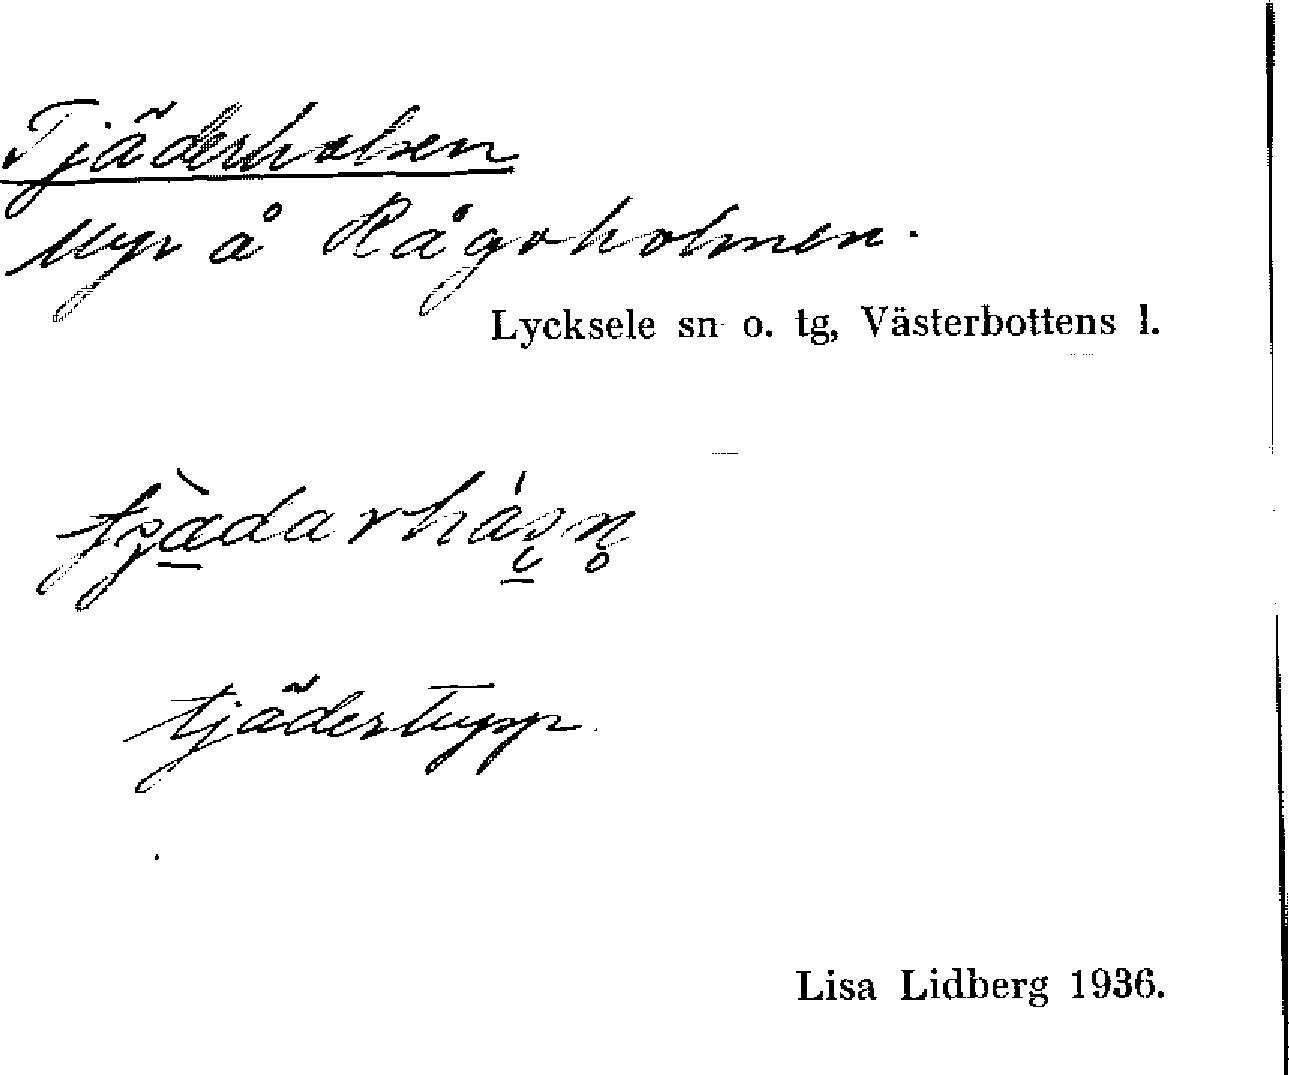 Tjäderhalsen
Myr å Rågoholmen.
Lycksele sn o. tg, Västerbottens l.
tjädertupp
Lisa Lidberg 1936.